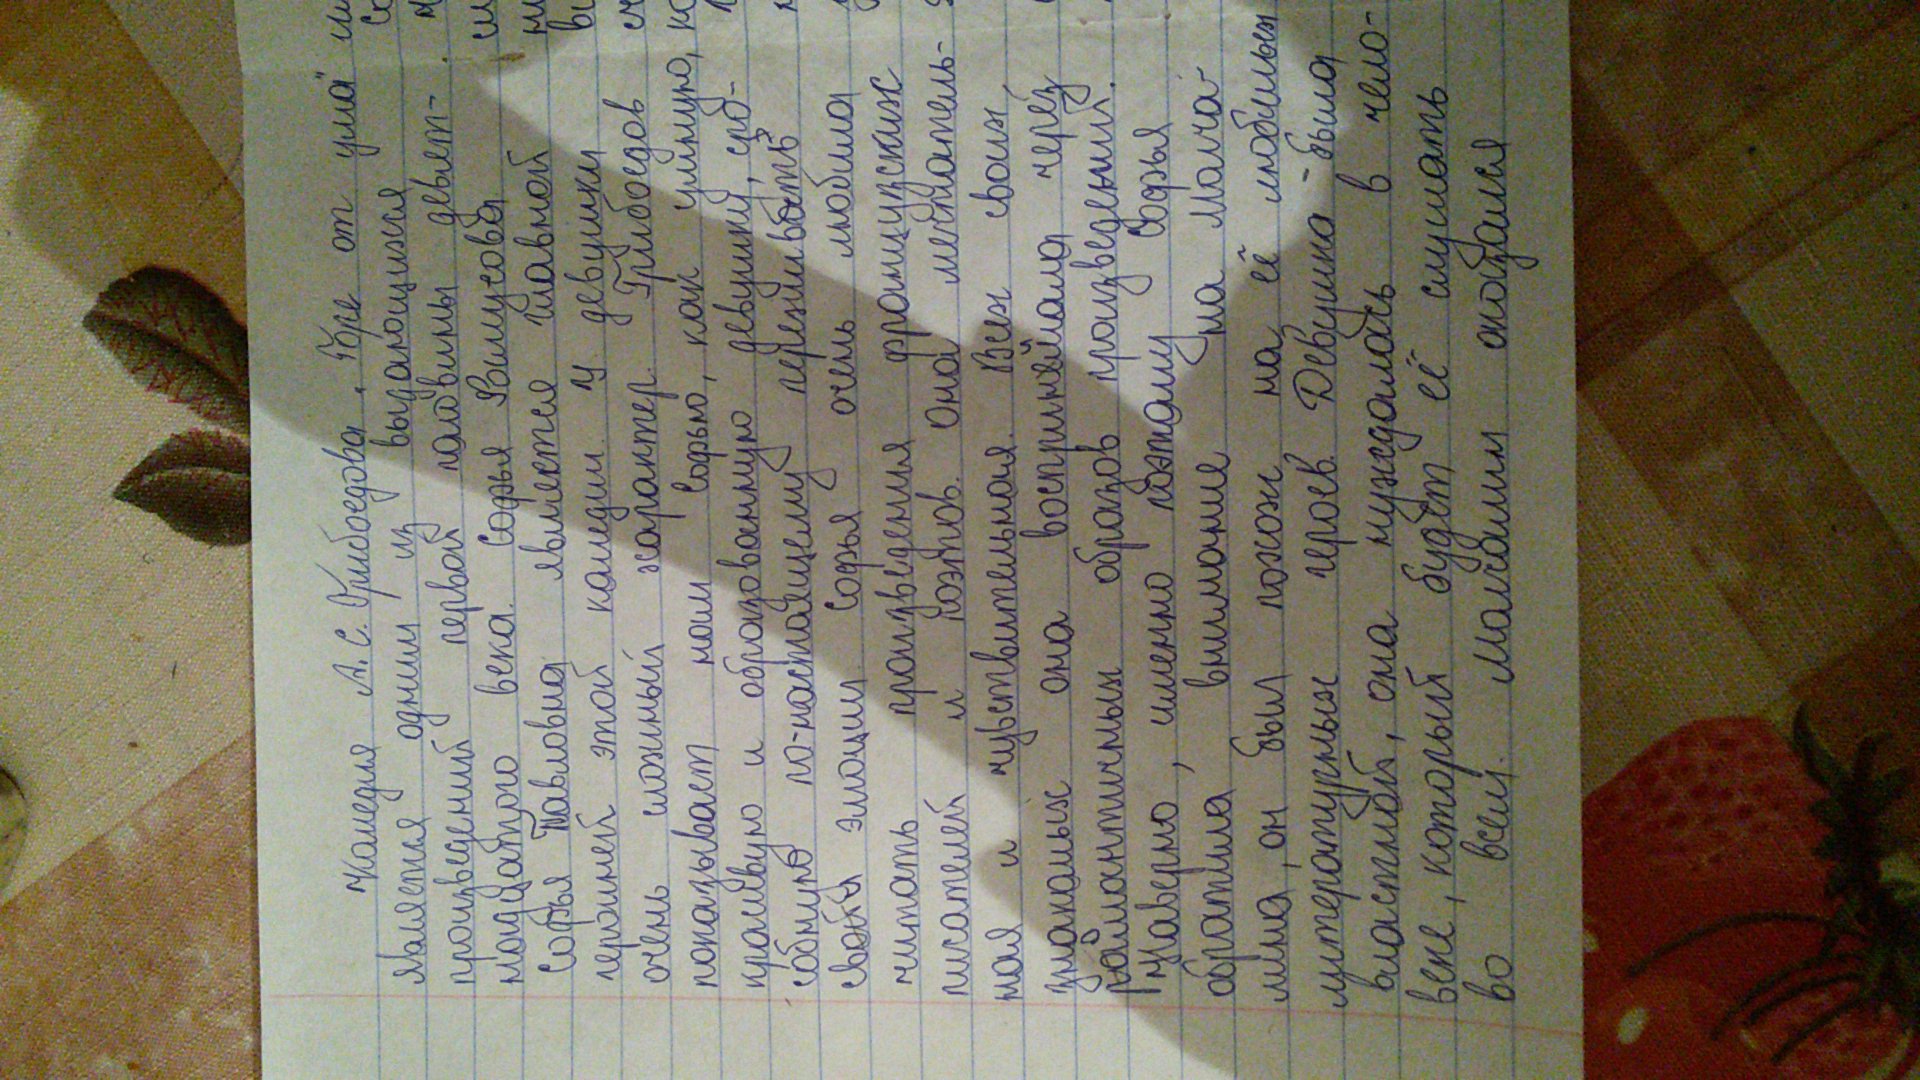 Комедия А. С. Грибоедова "Горе от ума"
является одним из выдающихся
произведений первой половины девят-
надцатого века. Софья Фамусова
Софья Павловна является главной
героиней этой комедии. У девушки
очень сложный характер. Грибоедов
показывает нам Софью, как умную,
красивую и образованную девушку, спо-
собную по-настоящему переживать
свои эмоции. Софья очень любила
читать произведения французских
писателей и поэтов. Она мечтатель-
ная и чувствительная. Всех своих
знакомых она воспринимала через
романтичных образов произведений.
Наверно, именно поэтому Софья
обратила внимание на Молча-
лина, он был похож на её любимых
литературных героев. Девушка - была
властной, она нуждалась в чело-
веке, который будет её слушать
во всём. Молчалин оказался